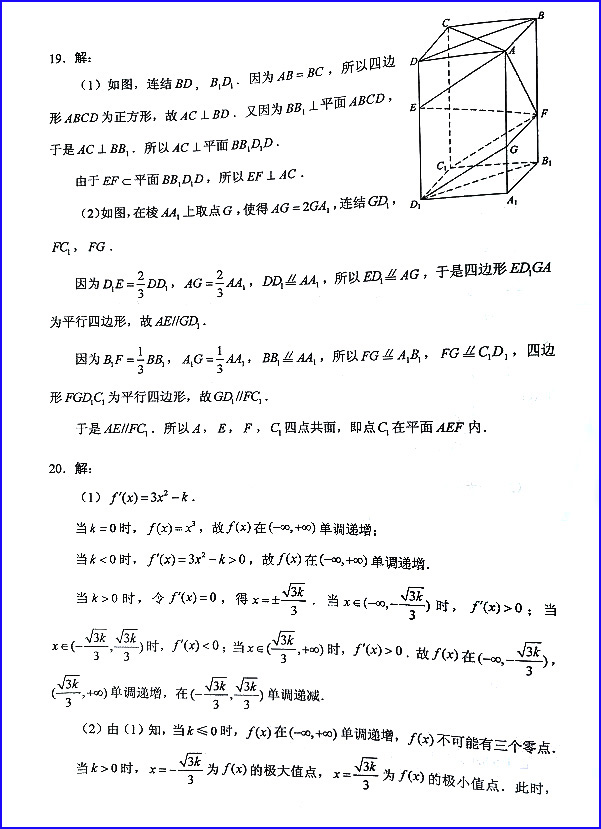 19. 解:
(1) 如图, 连结 BD, B₁D₁. 因为 AB = BC, 所以四边
形 ABCD 为正方形, 故 AC ⊥ BD. 又因为 BB₁ ⊥ 平面 ABCD,
于是 AC ⊥ BB₁. 所以 AC ⊥ 平面 BB₁D₁D.
由于 EF ⊂ 平面 BB₁D₁D, 所以 EF ⊥ AC.
(2)如图, 在棱 AA₁ 上取点 G, 使得 AG = 2GA₁, 连结 GD₁,
FC₁, FG.
C
B
D
A
E
F
G
C₁
B₁
D₁
A₁
因为 D₁E = 2/3 DD₁, AG = 2/3 AA₁, DD₁ ⫽ AA₁, 所以 ED₁ ⫽ AG, 于是四边形 ED₁GA
为平行四边形, 故 AE//GD₁.
因为 B₁F = 1/3 BB₁, A₁G = 1/3 AA₁, BB₁ ⫽ AA₁, 所以 FG ⫽ A₁B₁, FG ⫽ C₁D₁, 四边
形 FGD₁C₁ 为平行四边形, 故 GD₁//FC₁.
于是 AE//FC₁. 所以 A, E, F, C₁ 四点共面, 即点 C₁ 在平面 AEF 内.
20. 解:
(1) f′(x) = 3x² − k.
当 k = 0 时, f(x) = x³, 故 f(x) 在 (−∞, +∞) 单调递增;
当 k < 0 时, f′(x) = 3x² − k > 0, 故 f(x) 在 (−∞, +∞) 单调递增.
当 k > 0 时, 令 f′(x) = 0, 得 x = ±√(3k)/3. 当 x ∈ (−∞, −√(3k)/3) 时, f′(x) > 0; 当
x ∈ (−√(3k)/3, √(3k)/3) 时, f′(x) < 0; 当 x ∈ (√(3k)/3, +∞) 时, f′(x) > 0. 故 f(x) 在 (−∞, −√(3k)/3),
(√(3k)/3, +∞) 单调递增, 在 (−√(3k)/3, √(3k)/3) 单调递减.
(2) 由 (1) 知, 当 k ≤ 0 时, f(x) 在 (−∞, +∞) 单调递增, f(x) 不可能有三个零点.
当 k > 0 时, x = −√(3k)/3 为 f(x) 的极大值点, x = √(3k)/3 为 f(x) 的极小值点. 此时,